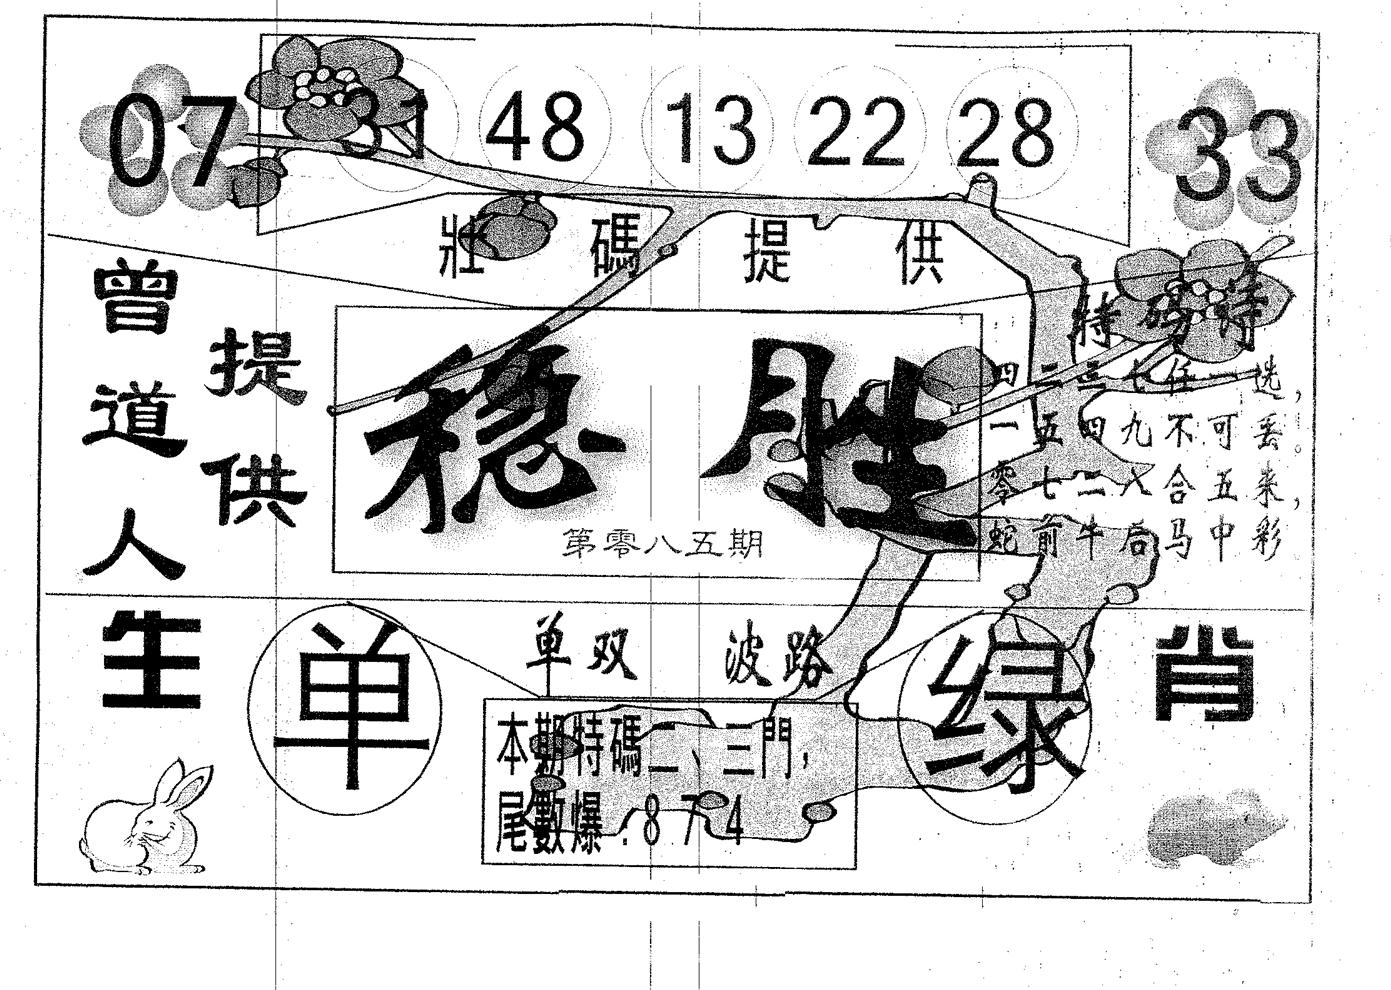 07 31 48 13 22 28 33
壯碼提供
曾道人
提供
稳胜
第零八五期
特码诗
四二三七任一选，
一五四九不可丢。
零七二八合五来，
蛇前牛后马中彩
生
肖
单双 波路
单
绿
本期特碼二、三門，
尾數爆：8 7 4